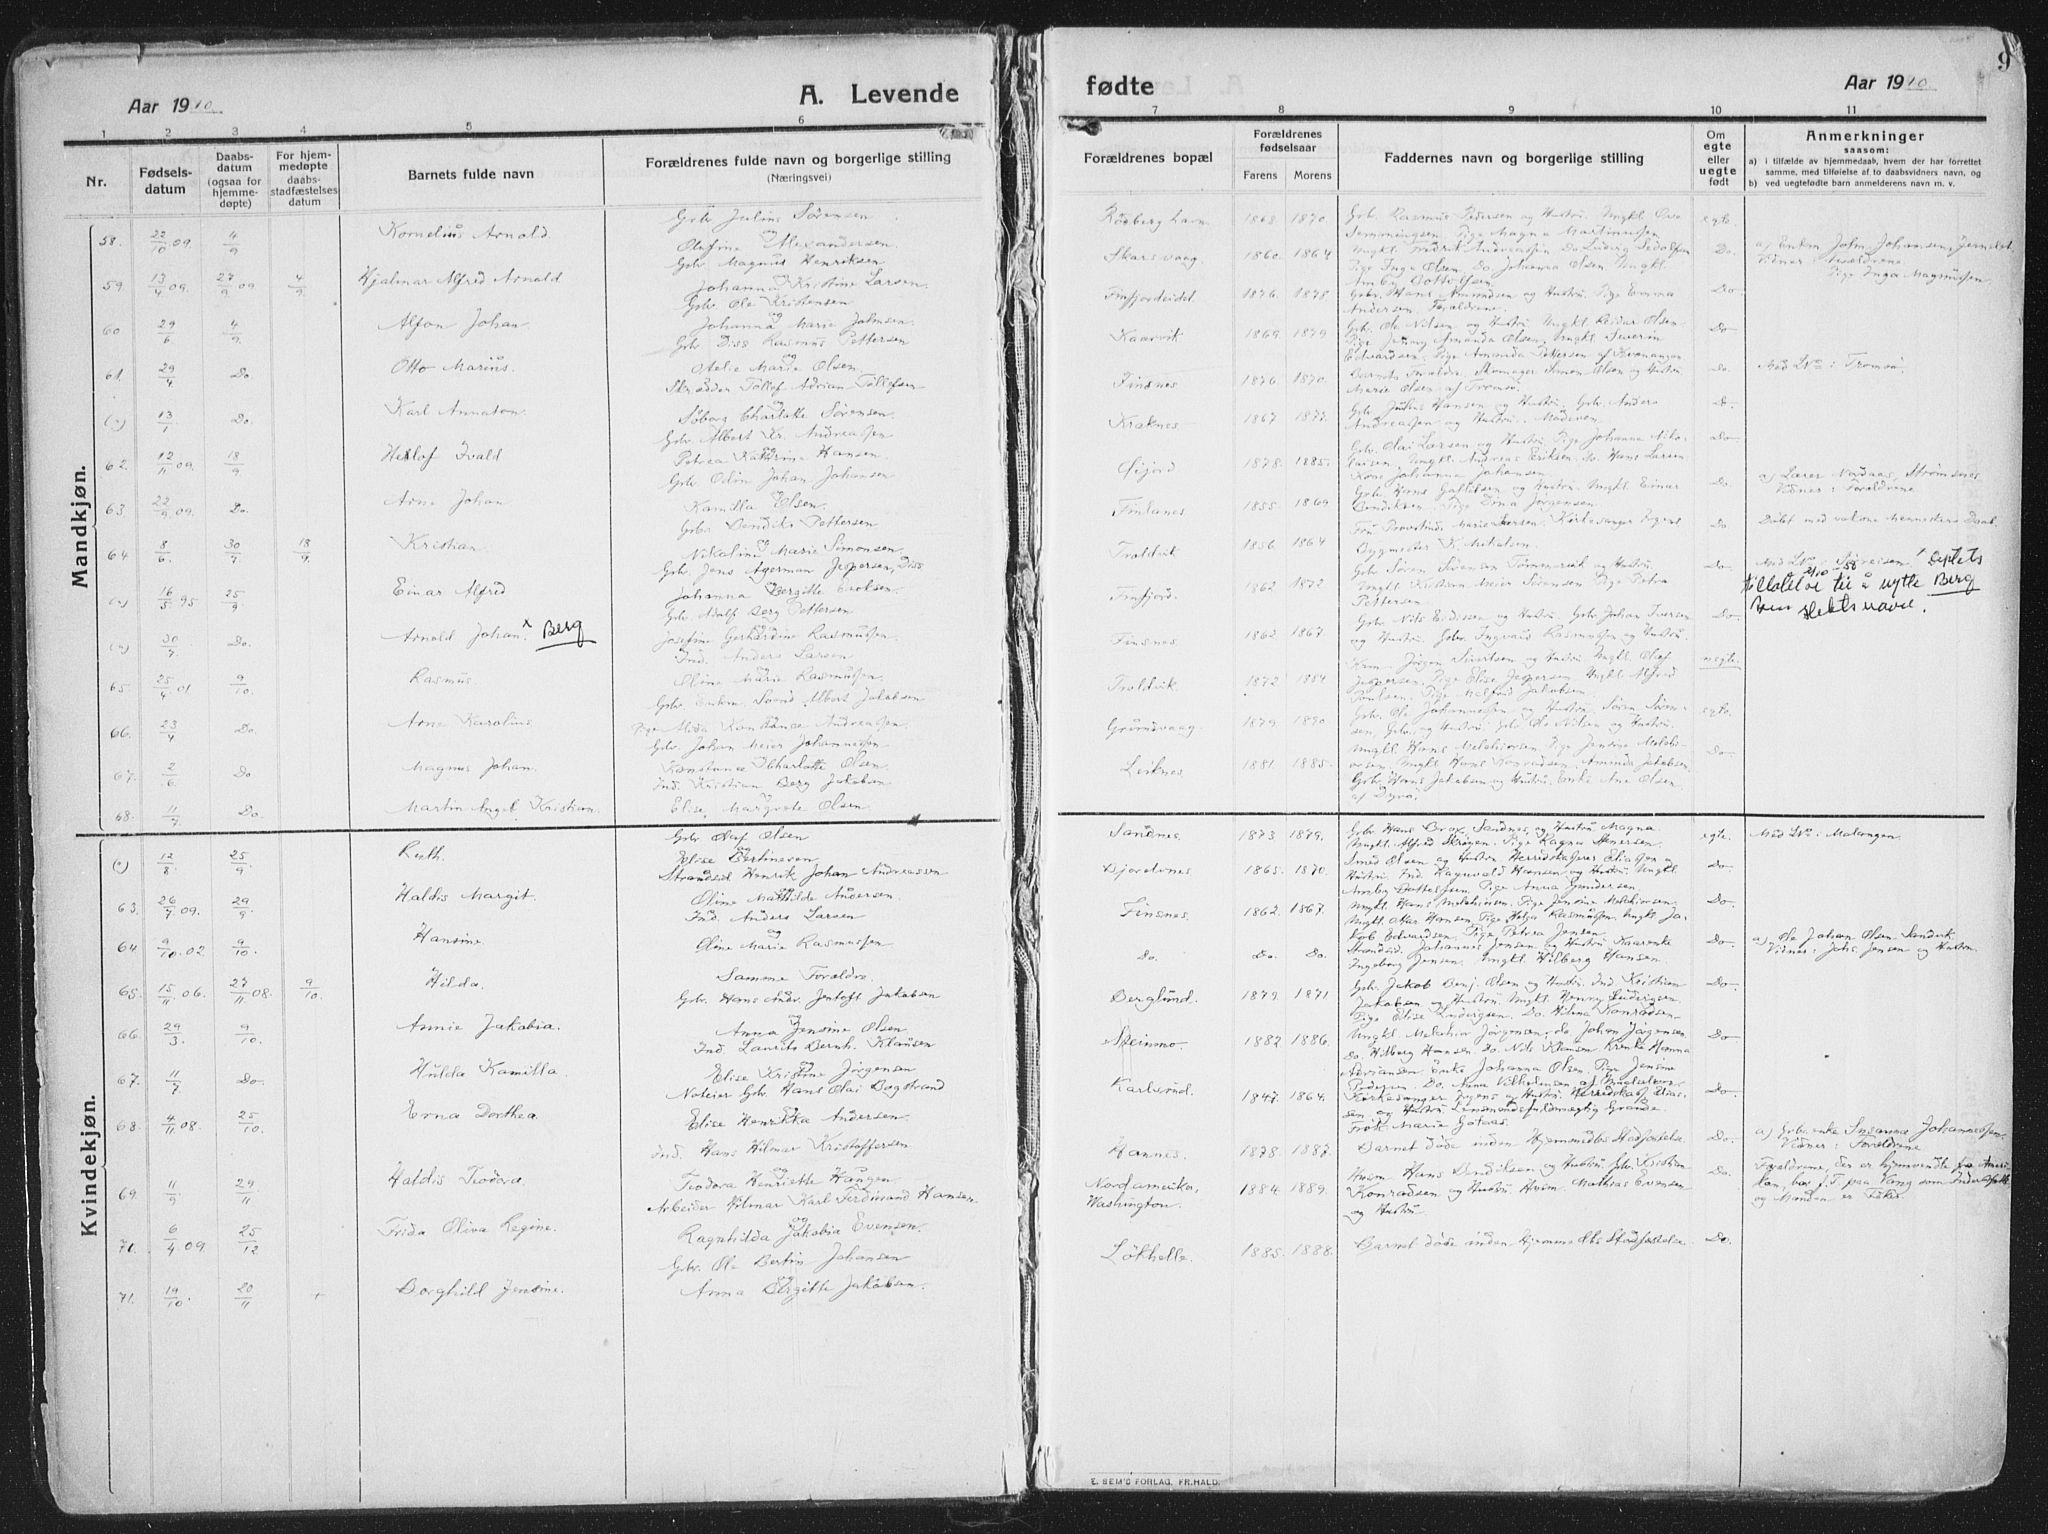 Aar 1910
A. Levende
1 2 3 4 5 6
Nr.
Fødsels-
datum
Daabs-
datum
(ogsaa for
hjemme-
døpte)
For hjem-
medøpte
daabs-
stadfæstelses
datum
Barnets fulde navn
Forældrenes fulde navn og borgerlige stilling
(Næringsvei)
Mandkjøn.
58. 22/10 09. 4/9 Kornelius Arnold Grbr Julius Sørensen
og
Olufine Alexandersen
59 13/4 09. 27/9 09 4/9 Hjalmar Alfred Arnold Grbr. Magnus Henriksen
Johanna Kristine Larsen
60 29/6 4/9. Alfon Johan Grbr. Ole Kristensen
og
Johanna Marie Johnsen
61. 29/4 Do. Otto Marius. Pettersen
og
Marie Olsen
13/1 Do. Karl Annaton Adrian Tollefsen
Charlotte Sørensen
62. 12/11 09. 18/9 Ivald Grbr. Albert Kr. Andreassen
Petrea Hansen
63. 22/9 09. Do. Arne Johan Grbr. Odin Johan Johansen
Kamilla Olsen
64 8/6. 30/7 18/9. Kristian Grbr. Bendiks Pettersen
og
Nikoline Marie Simonsen
16/5 95 25/9 Einar Alfred Grbr. Jens Agerman Jespersen,
Johanna Bergitte
30/7. Do. Arnold Johan. x Berg Grbr. Adolf Berg Pettersen
Josefine Gerhardine Rasmussen
65. 25/4 01 9/10. Rasmus Ind. Anders Larsen
og
Oline Marie Rasmussen
66. 23/4 Do. Arne Karolius Grbr. Enkm. Albert Jakobsen
Pige Alida Konstanse Andreassen.
67. 2/6 Do Magnus Johan. Grbr. Johan Meier Johannessen
Konstanse Charlotte Olsen
68. 11/7 Do. Martin Angel Kristian. Ind. Kristian Berg Jakobsen
Elise Margrete Olsen
Kvindekjøn.
12/8 25/9 Ruth. Grbr Olaf Olsen
og
Elise Bertinesen
63. 26/7 09. 29/9. Haldis Margit. Strandsid Henrik Johan Andreassen
Oline Mathilde Andersen
64 9/10 02 9/10. Hansine Ind. Anders Larsen
og
Oline Marie Rasmussen
65. 15/11 06. 27/11 08. 9/10. Hilda. Samme Foreldre.
66. 29/3 9/10. Annie Jakobia. Grbr. Hans Andr. Jentoft Jakobsen
og
Anna Jensine Olsen
67. 11/7 Do. Hulda Kamilla. Ind. Laurits Bernh. Klausen
Elise Kristine Jørgensen
68. 4/11 08. 25/10. Erna Dorthea Noteier Grbr. Hans Olai Bogstrand
Elise Henrikka Andersen
69. 11/9 29/11 Haldis Teodora Ind. Hans Hilmar Kristoffersen
og
Teodora Henriette Haugen
71. 6/4 09. 25/12 Frida Oliva Regine. Arbeider Hilmar Karl Ferdinand Hansen
og
Ragnhilda Jakobia Evensen
71. 19/10. 20/11 + Borghild Jensine. Grbr. Ole Bertin Johansen
og
Anna Birgitte Jakobsen.
fødte
Aar 1910
9
7 8 9 10 11
Forældrenes bopæl
Forældrenes
fødselsaar
Farens. Morens.
Faddernes navn og borgerlige stilling
Om
egte
eller
uegte
født
Anmerkninger
saasom:
a) i tilfælde av hjemmedaab, hvem der har forrettet
samme, med tilføielse af to daabsvidners navn, og
b) ved uegtefødte barn anmelderens navn m. v.
1868. 1870 Grb. Rasmus Pedersen og Hustru. Ungkl. Ove
Pige Magna Martinussen egte.
Skarsvaag. 1860. 1864 Ungkl. Fredrik Andreassen Do Ludvig
Pige Inga Olsen, Do. Johanna Olsen Ungkl. Do. a) Enkm. John Johansen,
Vidner: Foreldrene
Pige Inga Magnussen
Finfjordeidet 1876. 1878. Grbr. Hans Amundsen og Hustru. Pige Emma
Andersen. Foreldrene. Do.
Kaarvik 1869. 1879 Grb. Ole Nilsen og Hustru, Ungkl. Reidar Olsen.
Pige Jenny Amanda Olsen. Ungkl. Severin
Edvardsen. Pige Amanda Pettersen af Kvænangen Do
Finsnes 1876. 1870. Barnets Foreldre. Skomager Simon Olsen og Hustru
Marie Olsen af Tromsø. Do. Med Lv: Tromsø.
Kraknes 1867. Grb. Julius Hansen og Hustru, Grb. Anders
Andreassen og Hustru. Moderen. Do.
Øifjord 1878. 1885. Grb. Olai Larsen og Hustru Pige Johanna Niko-
laisen, Ungkl. Andreas Eriksen. Do. Hans Larsen
Kone Johanna Johansen Do
Finlanes 1855. 1869 Grb. Hans og Hustru. Ungkl. Einar
Bendiksen. Pige Erna Jørgensen. Do. a) Lærer Nordaas, Strømsnes
Vidner: Foreldrene
Troldvik 1856. 1864 Kirkesanger
Bygmester K. Mikalsen. Do Døbt med voksne Menneskers Daab.
Finfjord. 1862 1872 Grb. Søren Sørensen og Hustru
Ungkl. Kristian Meier Sørensen Pige Petra
Pettersen. Do. Med Lv: Sørreisen! Deptets
tillatelse 2/10 - 58 til å nytte Berg
som slektsnavn.
Finsnes. 1862. 1867. Grb. Nils Eidissen og Hustru. Grb. Johan Iversen
og Hustru. Grb. Ingvald Rasmussen og Hustru. Do.
Troldvik. 1872. 1884 Jørgen Sivertsen og Hustru Ungkl. Olaf
Jespersen. Pige Elise Jespersen Ungkl. Alfred
Paulsen. Pige Jakobsen. uegte.
Grundvaag. 1879. 1890 Grb. Ole Johannessen og Hustru, Søren Søren-
sen, Grb. og Hustru. Grb. Ole Nilsen og Hustru. egte.
Leiknes. 1881. 1885. Ungkl. Hans Melchiorsen. Pige Jensine Melchi-
orsen. Ungkl. Hans Konradsen. Aminda Jakobsen.
Grb. Hans Jakobsen og Hustru. Enke Ane Olsen.
af Dyrø. Do.
Sandnes. 1873. 1879. Grb. Hans Brox, Sandnes og Hustru Magna
Ungkl. Alfred Skrøgen. Pige Ragna Steversen. egte. Med Lv: Malangen.
Bjorelvnes 1865. 1870. Smed Olsen og Hustru Herredskasserer Eliassen og
Hustru. Ind. Ragnvald Hansen og Hustru Ungkl.
Pige Anna Gundersen. Do.
Finsnes. 1862. 1867. Ungkl. Hans Melchiorsen. Pige Jensine Melchiorsen.
Ungkl. Hansen. Pige Helga Rasmussen. Ungkl. Ja-
kob Edvardsen. Pige Petrea Jensen. Do.
Do. Do. Do. Strandsid. Johannes Jensen og Hustru Kaarenke
Ingeborg Jensen. Ungkl. Hilberg Hansen. Do. a) Ole Johan Olsen Sandvik
Vidnes: Johs. Jensen og Hustru.
Berglund. 1879. 1871 Grb. Jakob Benj. Olsen og Hustru. Ind. Kristian
Jakobsen og Hustru. Ungkl. Henry Ludvigsen.
Pige Elise Ludvigsen. Do. Hilma Konradsen Do.
Steinmo. 1882. 1886. Ungkl. Melchior Jørgensen. do. Johan Jørgensen
Do. Hilberg Hansen. Do. Nils Klausen. Hanna
Adriansen. Enke Johanna Olsen. Pige Jensine
Pedersen. Do. Anna Vilhelmsen af Do.
Karlsrud. 1847. 1864. Kirkesanger og Hustru. Herredskas. Elias-
sen og Hustru. Lensmandsfuldmægtig Grande.
Frøk. Marie Gotaas. Do.
Hannes. 1878. Barnet døde inden Hjemmedbs Stadfæstelse. Do. a) Grb. enke Susanna Johannessen.
Vidner: Foreldrene
Nordamerika,
Washington. 1884. 1889. Husm Hans Bendiksen og Hustru. Grb. Kristian
Konradsen og Hustru. Husm. Mathias Evensen
og Hustru Do. Foreldrene, der er hjemvendte fra Ameri-
kan, bor f. T. paa Vang som Inderstfolk
og Manden er Fisker.
Løkhelle. 1885. 1888. Barnet døde inden Hjemmedbs Stadfæstelse. Do.
E. SEM'S FORLAG, FR.HALD.